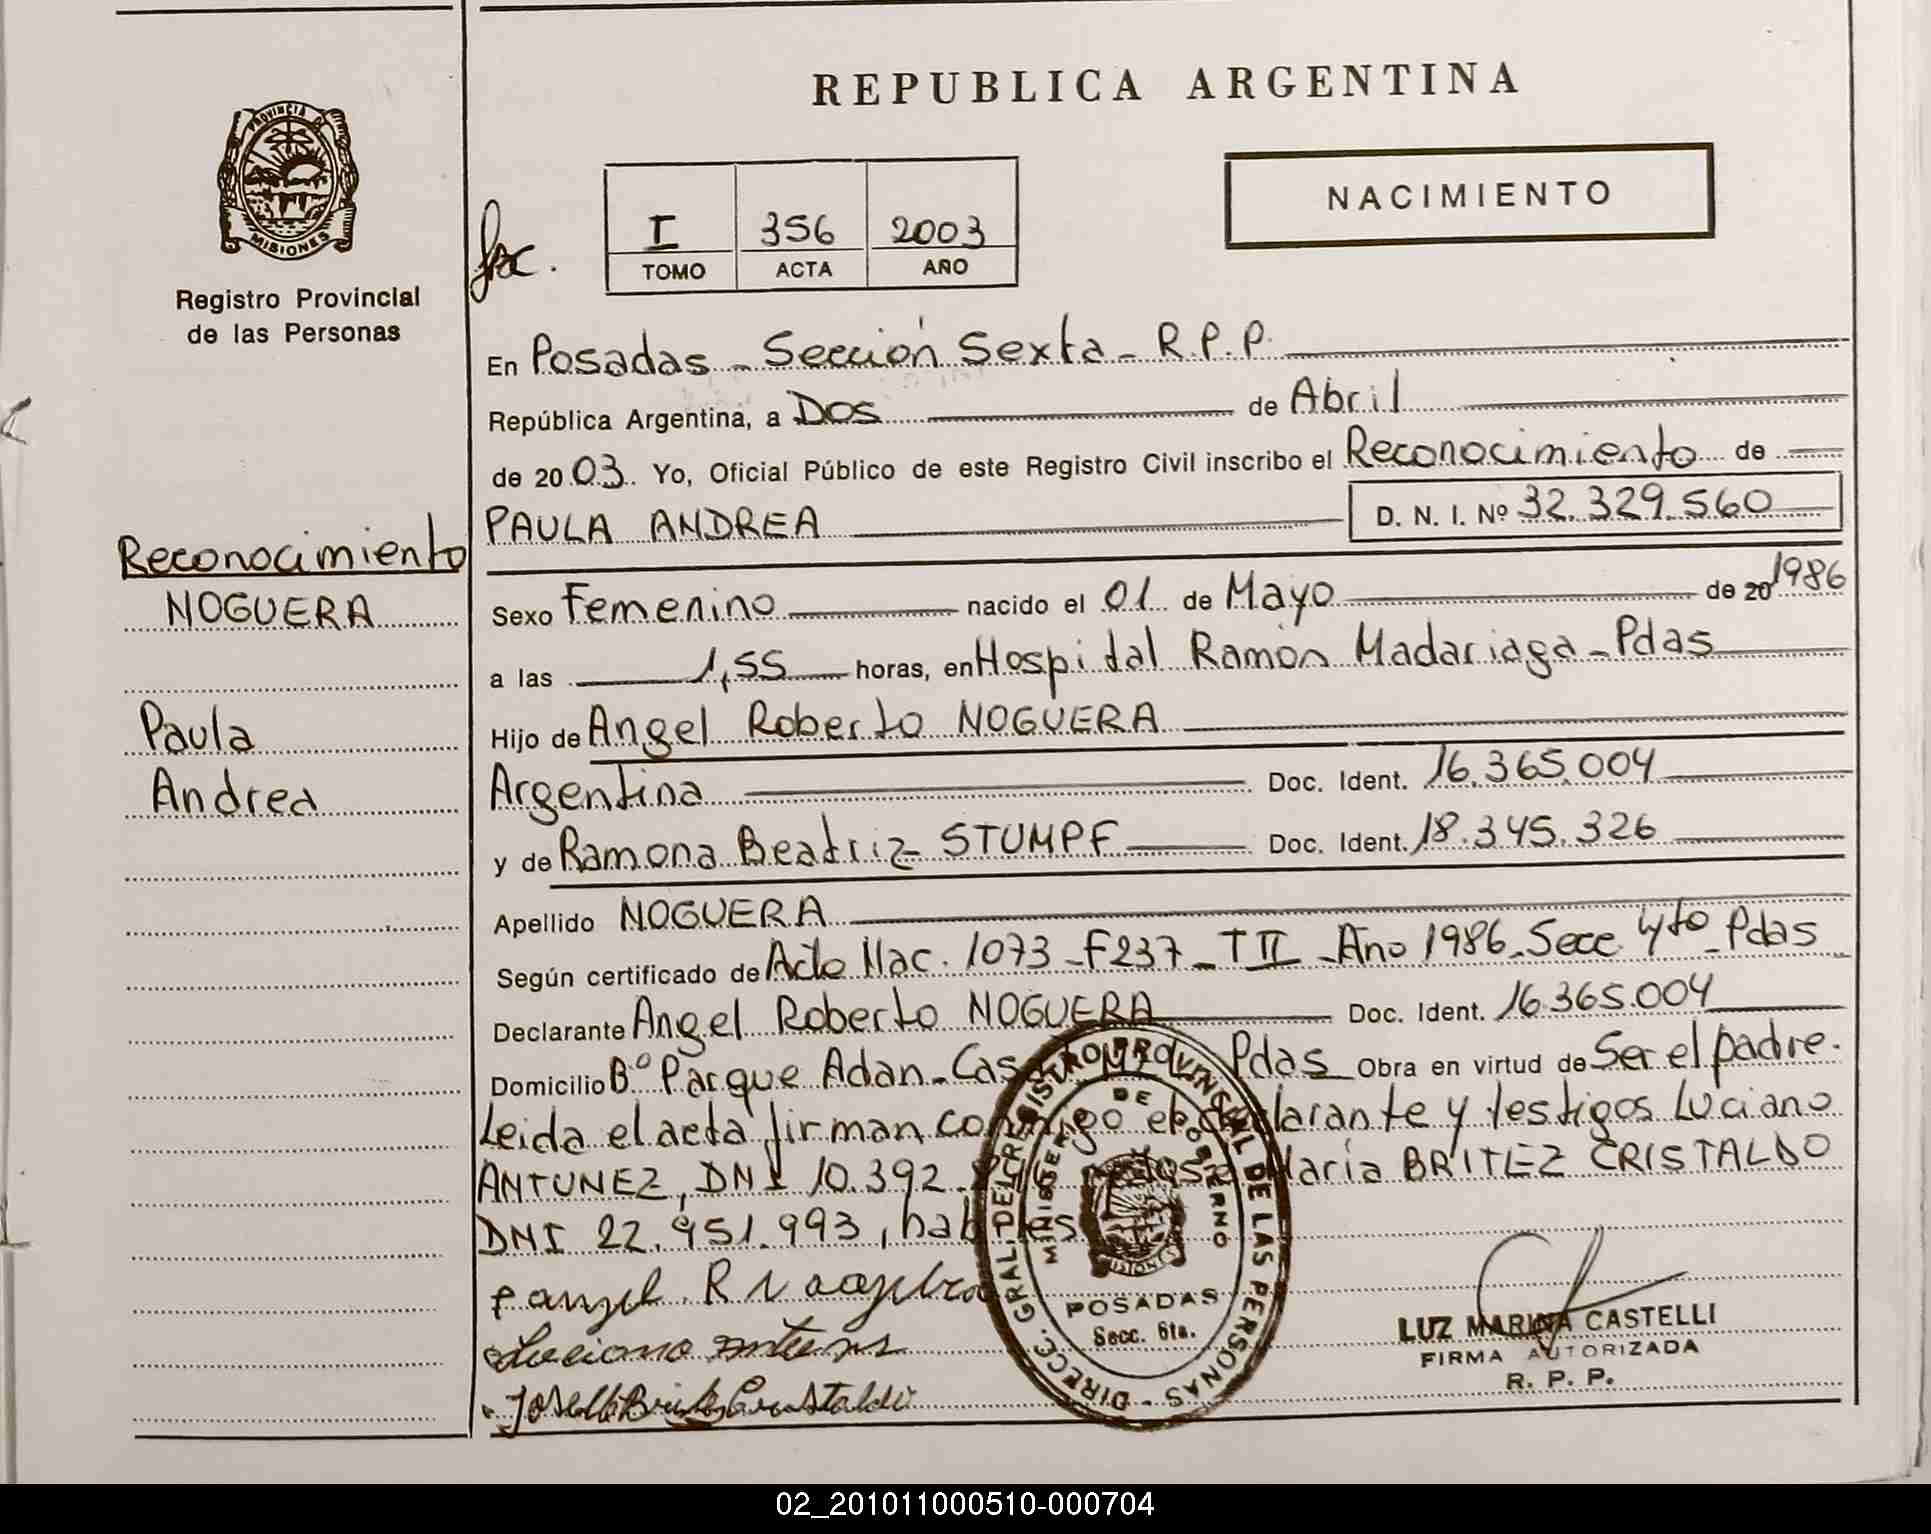 REPUBLICA ARGENTINA
PROVINCIA DE
MISIONES
Registro Provincial
de las Personas
NACIMIENTO
I 356 2003
TOMO ACTA AÑO
En Posadas - Sección Sexta - R.P.P.
República Argentina, a Dos de Abril
de 2003. Yo, Oficial Público de este Registro Civil inscribo el Reconocimiento de
PAULA ANDREA D. N. I. Nº 32.329.560
Reconocimiento
NOGUERA
Paula
Andrea
Sexo Femenino nacido el 01 de Mayo de 20 1986
a las 1,55 horas, en Hospital Ramón Madariaga - Pdas
Hijo de Angel Roberto NOGUERA
Argentina Doc. Ident. 16.365.004
y de Ramona Beatriz STUMPF Doc. Ident. 18.345.326
Apellido NOGUERA
Según certificado de Acta Nac. 1073 - F237 - T II - Año 1986 - Secc 4to - Pdas
Declarante Angel Roberto NOGUERA Doc. Ident. 16.365.004
Domicilio Bº Parque Adan - Pdas Obra en virtud de Ser el padre.
Leida el acta firman conmigo el declarante y testigos Luciano
ANTUNEZ, DNI 10.392. José María BRITEZ CRISTALDO
DNI 22.951.993, habiles
DIRECC. GRAL. DEL REGISTRO PROVINCIAL DE LAS PERSONAS
MINISTERIO DE GOBIERNO
MISIONES
POSADAS
Secc. 6ta.
LUZ MARINA CASTELLI
FIRMA AUTORIZADA
R. P. P.
02_201011000510-000704